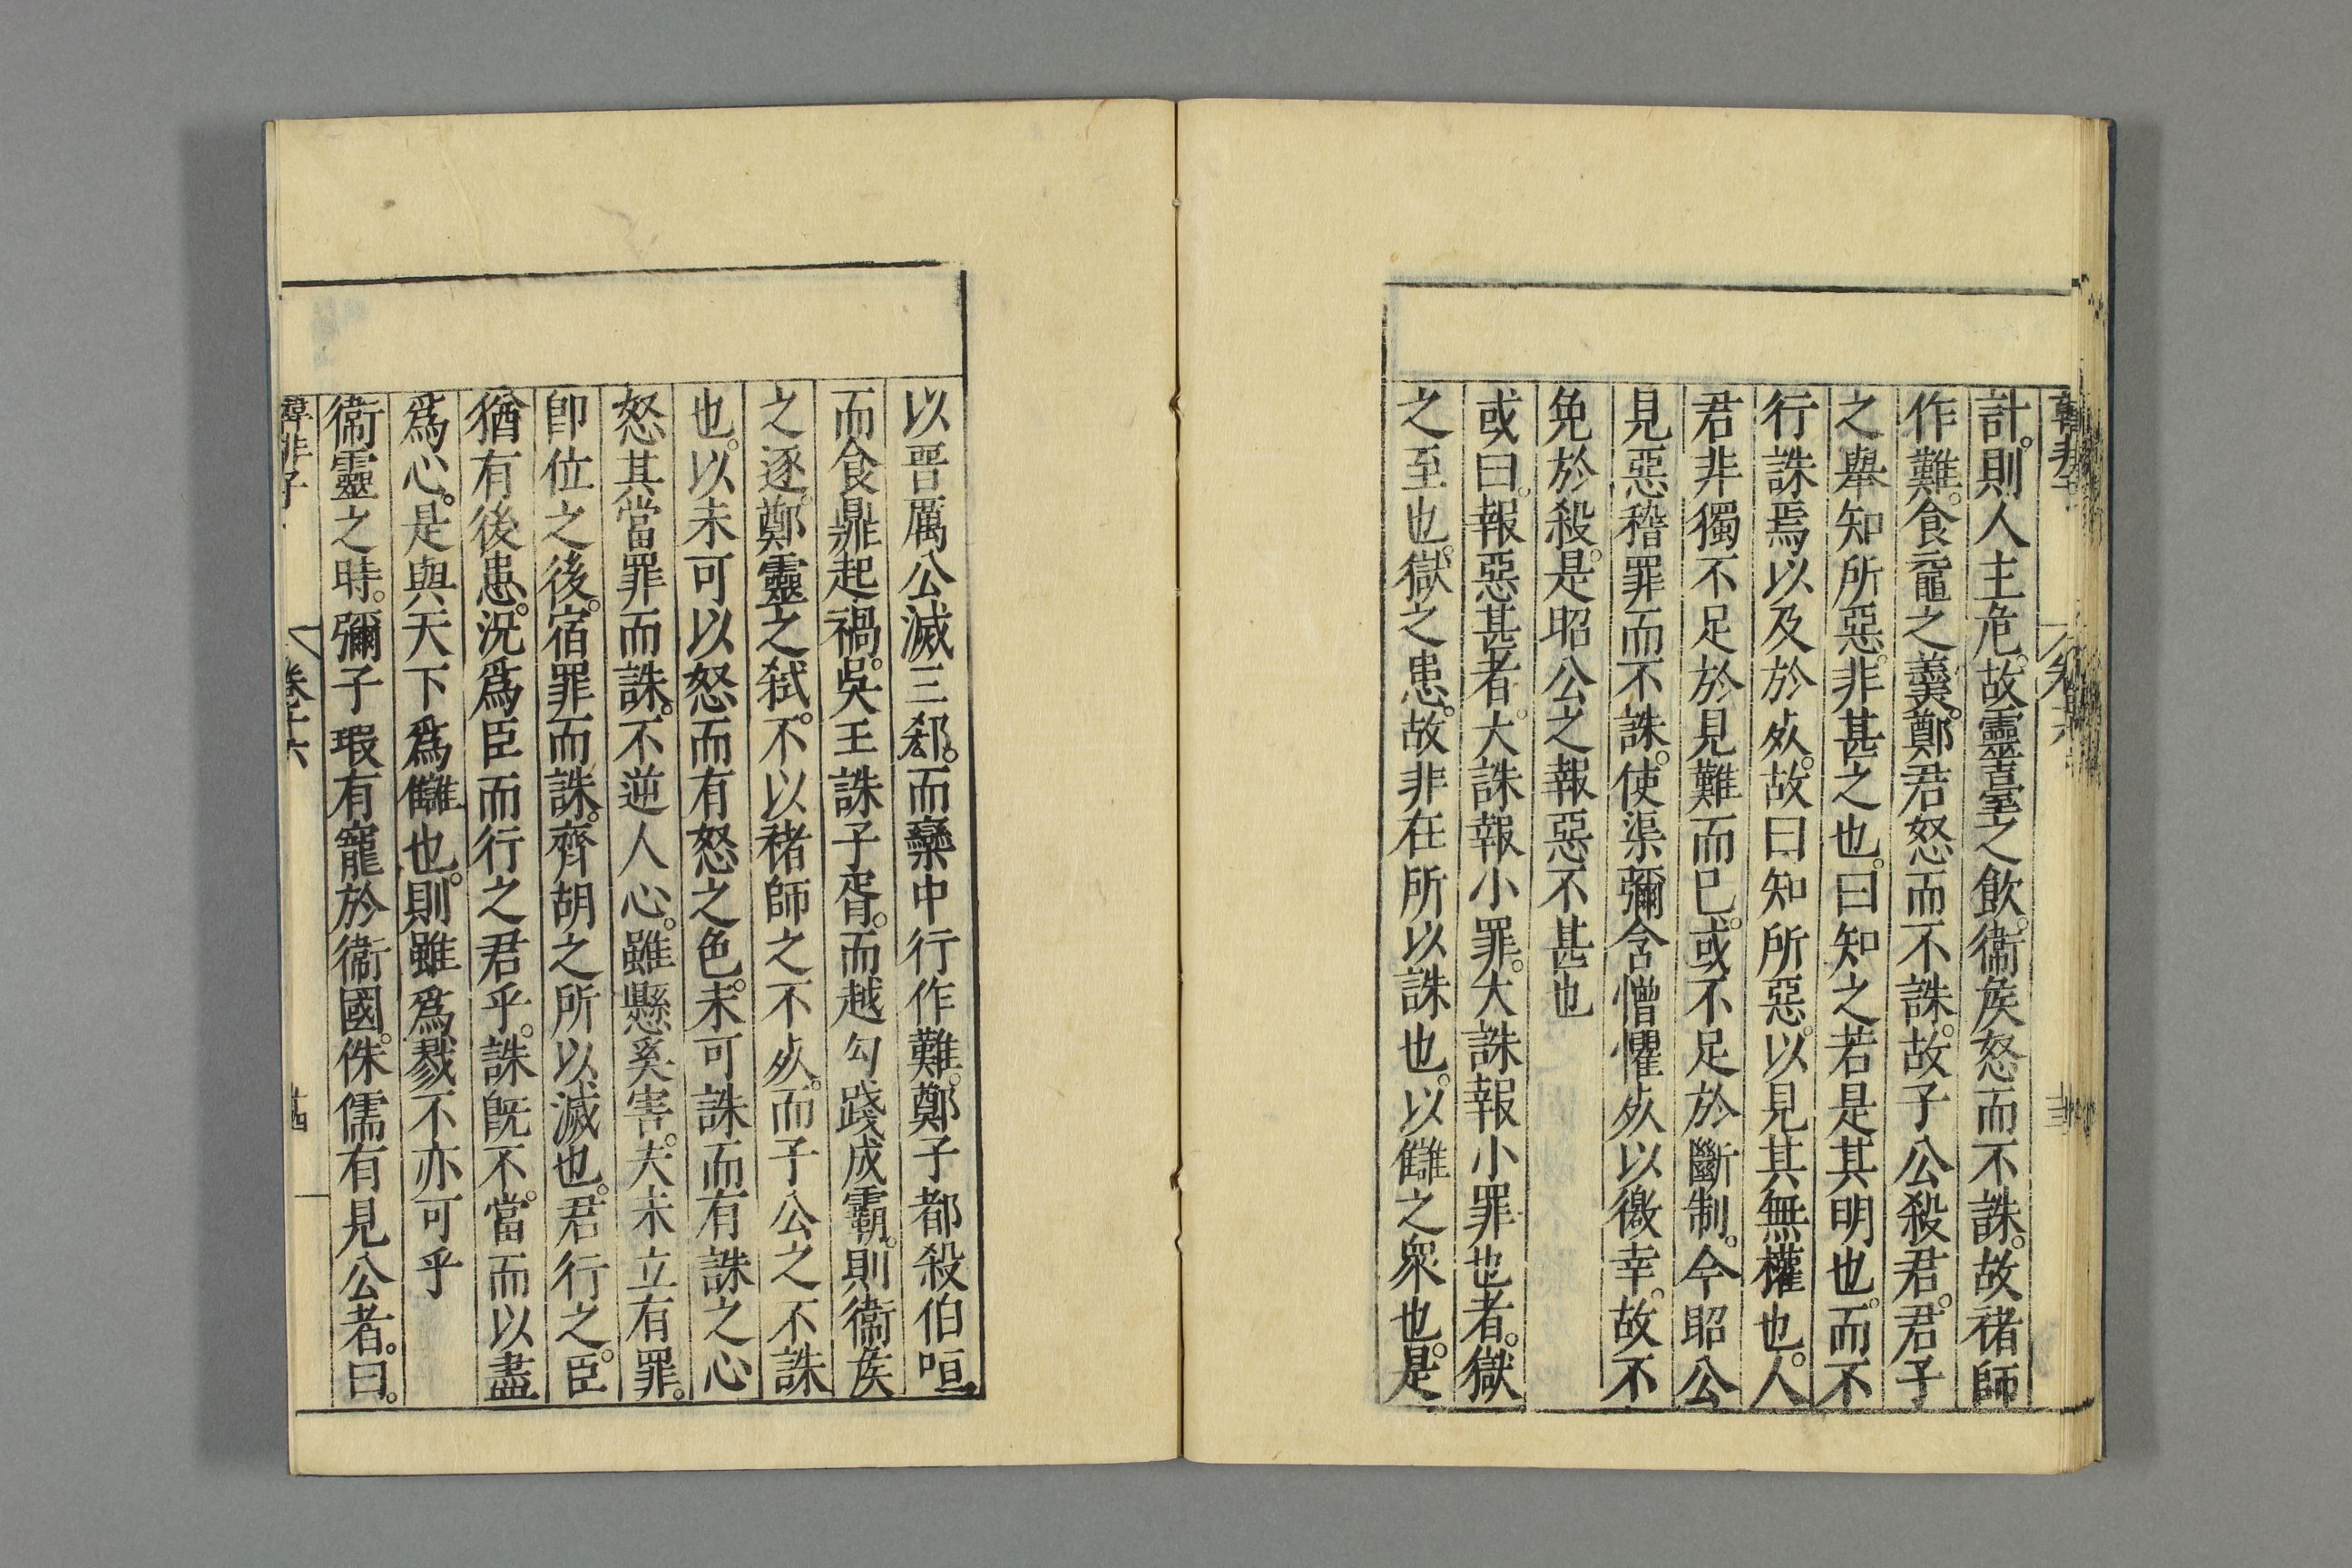 計。則人主危。故靈臺之飲。衞矦怒而不誅。故褚師
作難。食黿之羹。鄭君怒而不誅。故子公殺君。君子
之舉知所惡。非甚之也。曰知之若是其明也。而不
行誅焉以及於死。故曰知所惡。以見其無權也。人
君非獨不足於見難而已。或不足於斷制。今昭公
見惡稽罪而不誅。使渠彌含憎懼死以徼幸。故不
免於殺。是昭公之報惡不甚也
或曰。報惡甚者。大誅報小罪。大誅報小罪也者。獄
之至也。獄之患。故非在所以誅也。以讎之衆也。是
以晉厲公滅三郄。而欒中行作難。鄭子都殺伯咺。
而食鼎起禍。吳王誅子胥。而越勾踐成霸。則衞矦
之逐。鄭靈之弑。不以褚師之不死。而子公之不誅
也。以未可以怒而有怒之色。未可誅而有誅之心
怒其當罪而誅。不逆人心。雖懸奚害。夫未立有罪。
卽位之後。宿罪而誅。齊胡之所以滅也。君行之。臣
猶有後患。況爲臣而行之君乎。誅旣不當。而以盡
爲心。是與天下爲讎也。則雖爲戮不亦可乎
衞靈之時。彌子瑕有寵於衞國。侏儒有見公者。曰。
韓非子 卷十六 十四